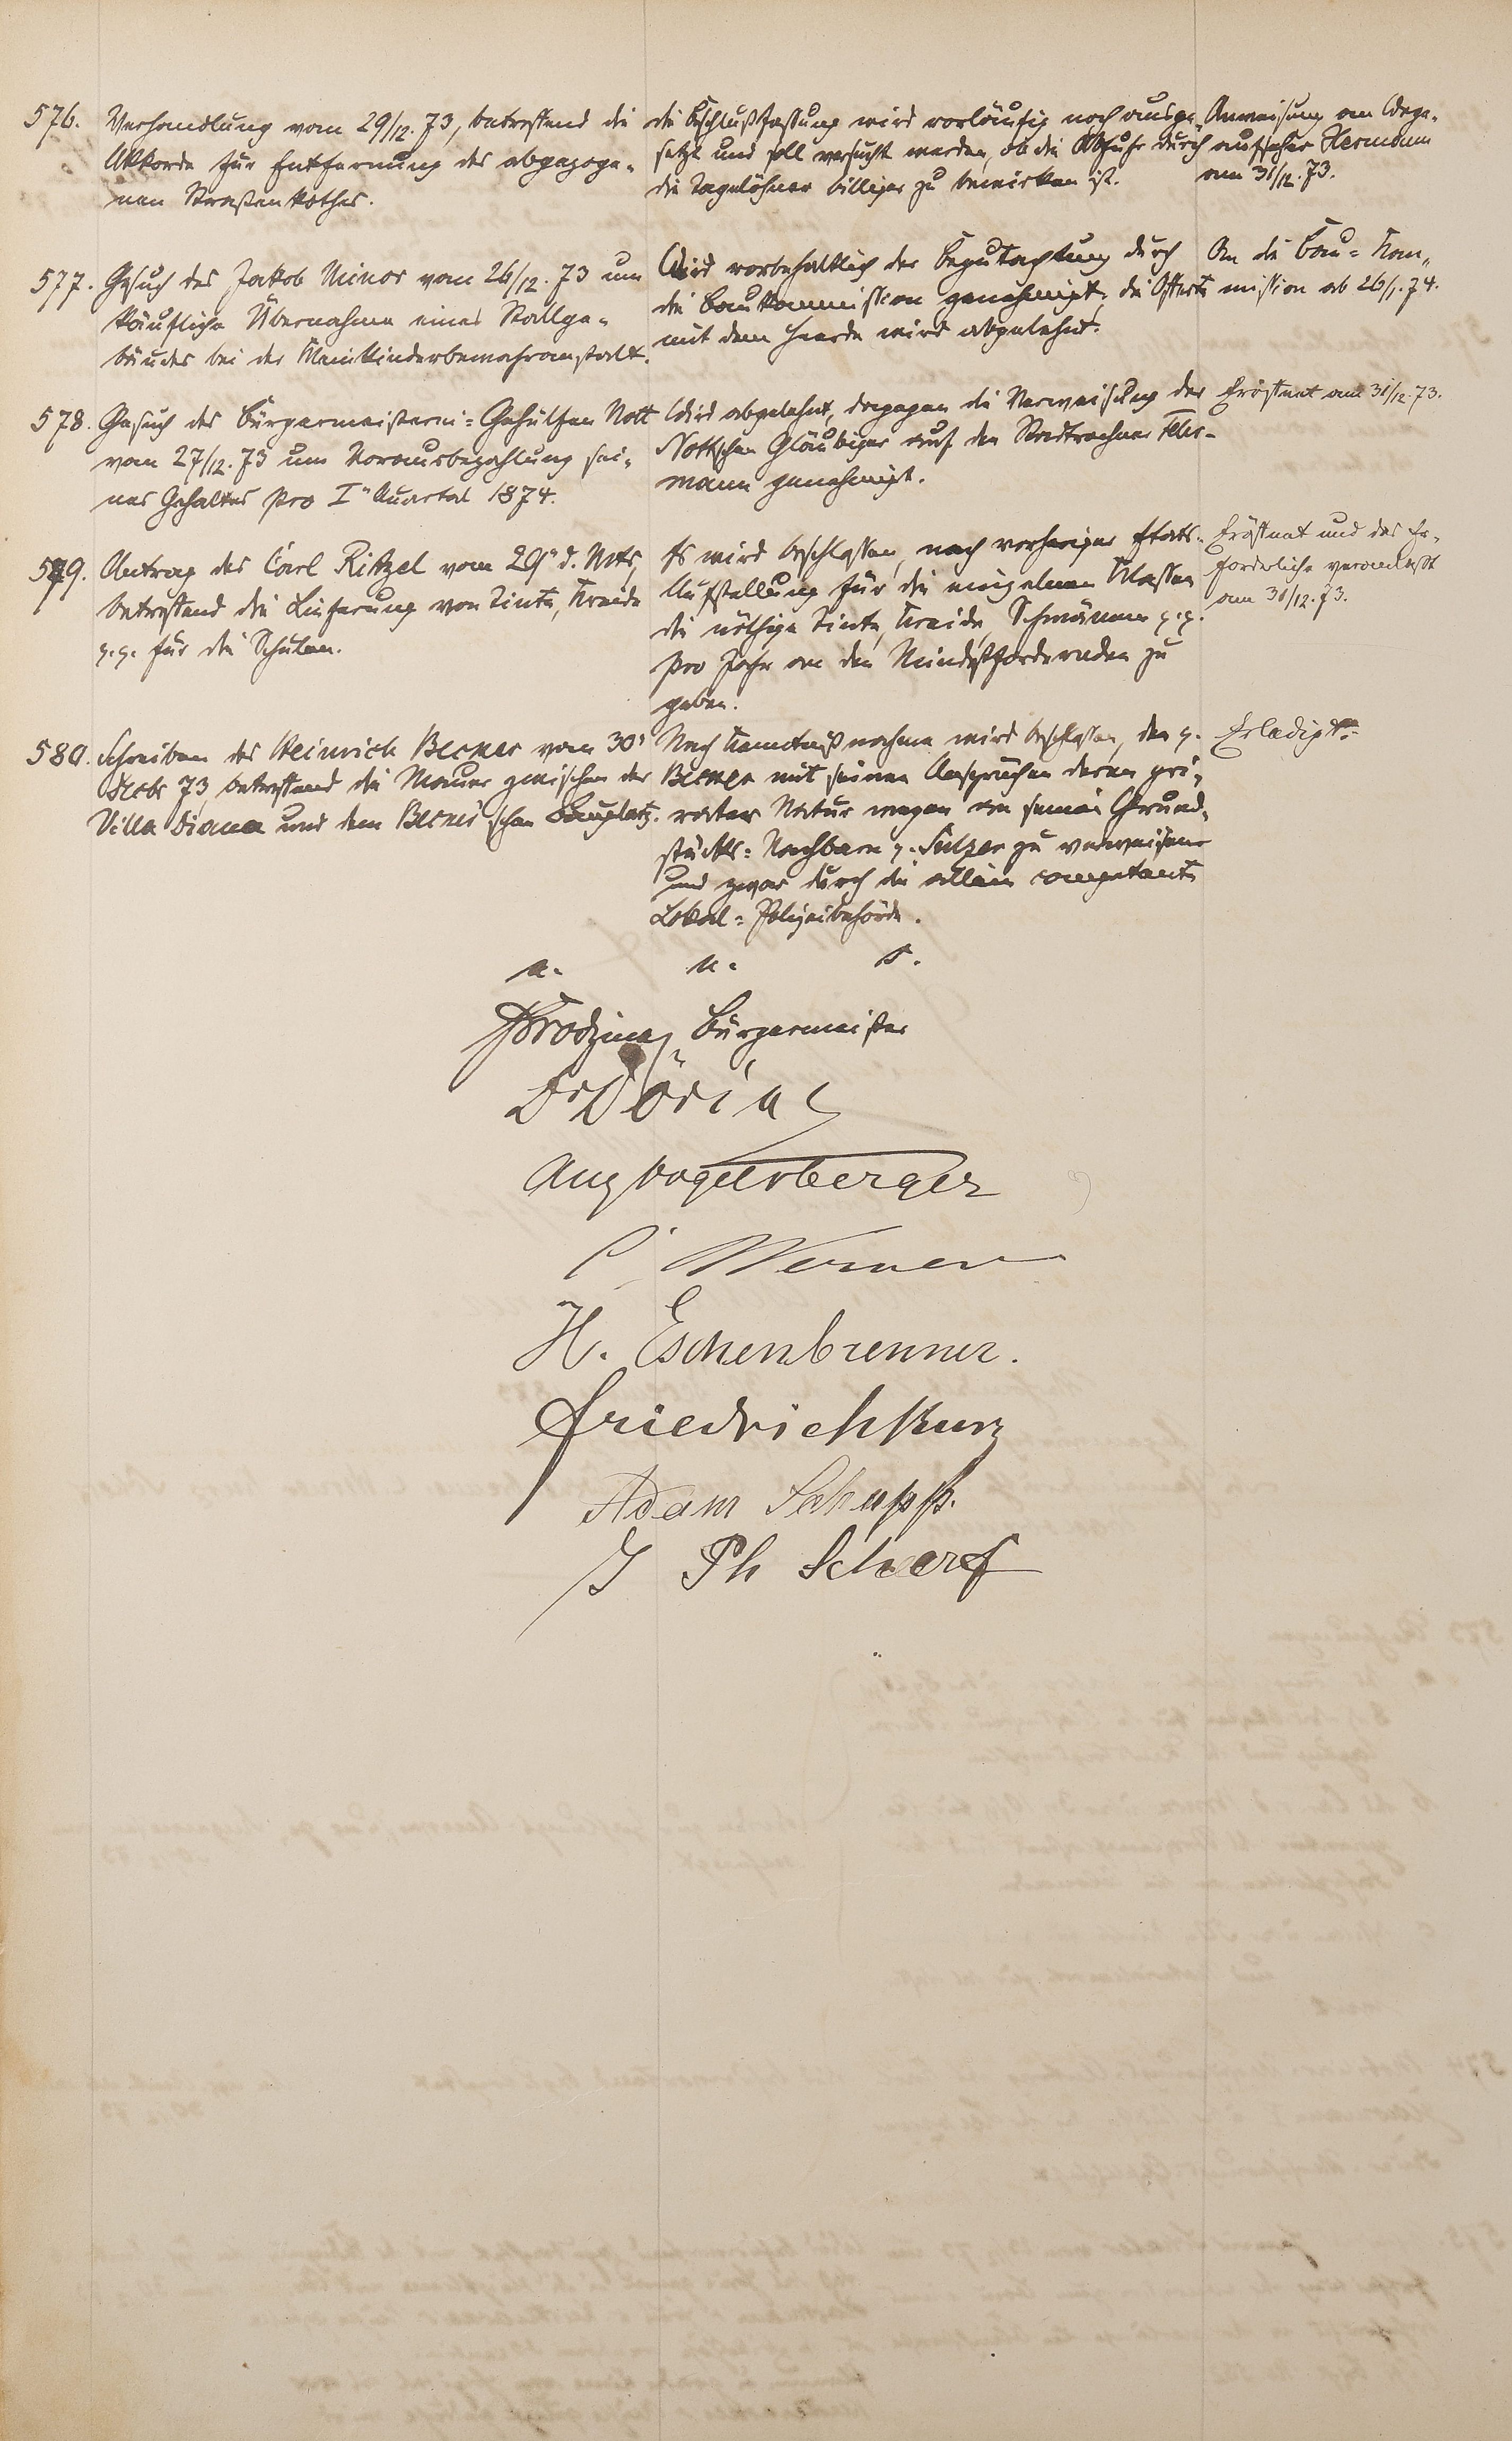 576.
Verhandlung vom 29/12. 73, betreffend die
Akkorde für Entfernung des abgezoge-
nen Straßenkothes.
die Beschlußfassung wird vorläufig noch ausge-
setzt und soll versucht werden, ob die Abfuhr durch
die Tagelöhner billiger zu bewirken ist.
Anweisung an Wege-
aufseher Hermann
am 31/12. 73.
577.
Gesuch des Jakob Minor vom 26/12. 73 um
käufliche Übernahme eines Stallge-
bäudes bei der Kleinkinderbewahranstalt.
Wird vorbehaltlich der Begutachtung durch
die Baukommission genehmigt; die Offerte
mit dem Heerde wird abgelehnt.
An die Bau-Kom-
mission ab 26/1. 74.
578.
Gesuch des Bürgermeisterei-Gehülfen Nott
vom 27/12. 73 um Vorausbezahlung sei-
nes Gehaltes pro I" Quartal 1874.
Wird abgelehnt, dagegen die Verweisung der
Nottschen Gläubiger auf den Stadtrechner
mann genehmigt.
Eröffnet am 31/12. 73.
579.
Antrag des Carl Ritzel vom 29" d. Mts,
betreffend die Lieferung von Tinte, Kreide
p.p. für die Schulen.
Es wird beschlossen, nach vorheriger Etats-
Aufstellung für die einzelnen Klassen
die nöthige Tinte, Kreide, Schwämme p.p.
pro Jahr an den Mindestfordernden zu
geben.
Eröffnet und das Er-
forderliche veranlaßt
am 31/12. 73.
580.
Schreiben des Heinrich Becker vom 30'
Decbr 73, betreffend die Mauer zwischen der
Villa Diana und dem Becker'schen Bauplatz.
Nach Kenntnißnahme wird beschlossen, den p.
Becker mit seinen Ansprüchen deren pri-
vater Natur wegen an seinen Grund-
stücks-Nachbarn p. Sulzer zu verweisen
und zwar durch die allein competente
Lokal-Polizeibehörde.
Erledigt.
a. u. s.
Bürgermeister
Dr Döring
Aug Vogelsberger
C. Werner
H. Eschenbrenner.
Friedrich Kurz
Adam Schupp.
J Ph Scherf